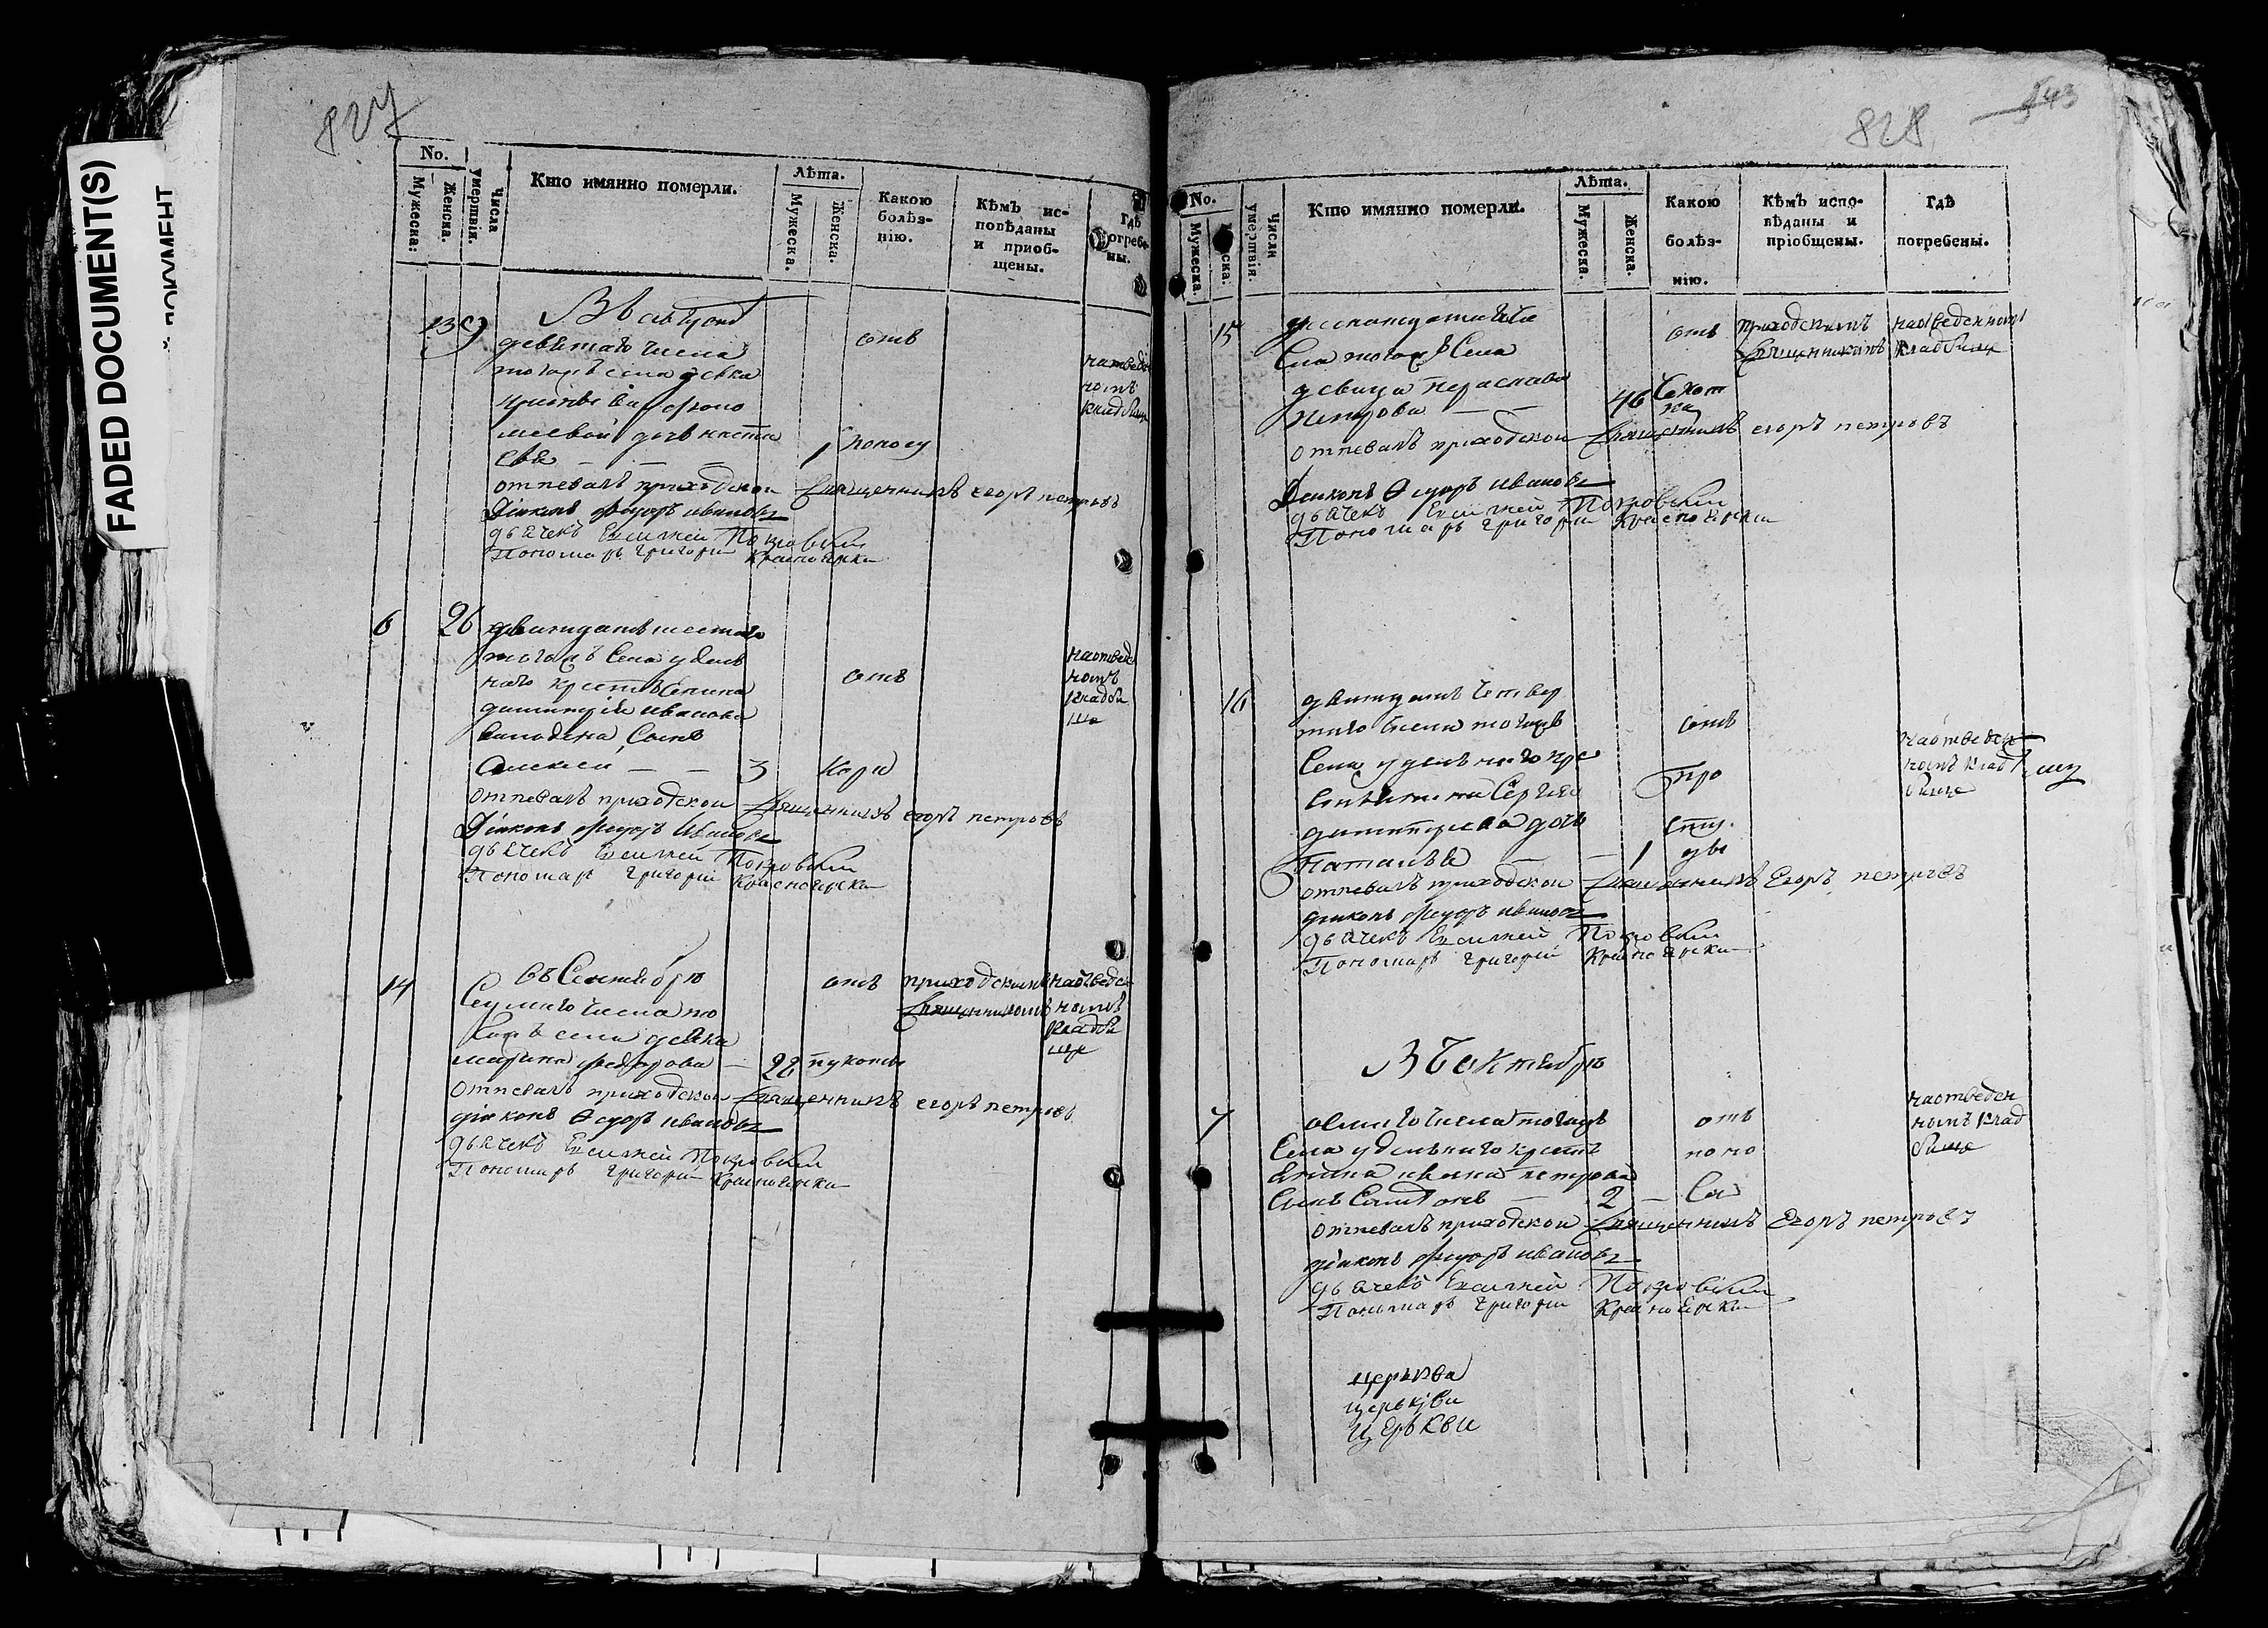 827
FADED DOCUMENT(S)
No.
Мужеска:
Женска.
Числа умертвія.
Кто имянно померли.
Лѣта.
Мужеска.
Женска.
Какою болѣз-
нію.
Кѣмъ ис-
повѣданы
и приоб-
щены.
Гдѣ
погребе-
ны.
13 9
девятаго числа
тогожъ села девка
от
1 поносу
отпевалъ приходскои священникъ егоръ петровъ
Діаконъ Федоръ Ивановъ
дьячекъ Евсигней Покровскии
Пономарь Григории Красноярски
6 26 дватцать шестаго
тогожъ Села удель
наго крестьянина
димитрія иванова
сынъ
Алексеи — — 3
отъ
Кори
на отведе
номъ
кладби
ще
отпевалъ приходскои священникъ егоръ петровъ
Діаконъ Федоръ Ивановъ
дьячекъ Евсигней Покровскии
Пономарь Григории Красноярски
14
въ Сентябрѣ
Седмаго числа то
гожъ села девка
Марина Федорова — 22
отъ
приходскимъ
священникомъ
на отведе
номъ
кладби
ще
отпевалъ приходскои священникъ егоръ петровъ
діаконъ Ѳедоръ ивановъ
дьячекъ Евсигней Покровскии
Пономарь Григории Красноярски
828
143
No.
Мужеска.
Женска:
Числа умертвія.
Кто имянно померли.
Лѣта.
Мужеска.
Женска.
Какою
болѣз-
нію.
Кѣмъ испо-
вѣданы и
пріобщены.
Гдѣ
погребены.
15
сла тогожъ Села
девица
Петрова — — 46
отъ
Чехот
ки
приходскимъ
священникомъ
на отведенномъ
кладбище
отпевалъ приходскои священникъ егоръ петровъ
Діаконъ Ѳедоръ Ивановъ
дьячекъ Евсигней Покровскии
Пономарь Григории Красноярски
16
двитцать четвер
таго числа тогожъ
Села удельнаго кре
стьянина Сергия
димитриева дочь
Наталья — — 1
отъ
про
сту
ды
на отведен
номъ клад
бище
отпевалъ приходскои священникъ Егоръ петровъ
диаконъ Федоръ ивановъ
дьячекъ Евсигней Покровскии
Пономарь Григорій Красноярски
Въ Октябрѣ
7
осмаго числа тогожъ
Села удельнаго кресть
янина ивана петрова
Сынъ — 2 —
отъ
поно
са
на отведен
номъ клад
бище
отпевалъ приходскои священникъ Егоръ петровъ
діаконъ Федоръ ивановъ
дьячекъ Евсигней Покровскии
Пономарь Григории Красноярски
церьква
церькви
церькви